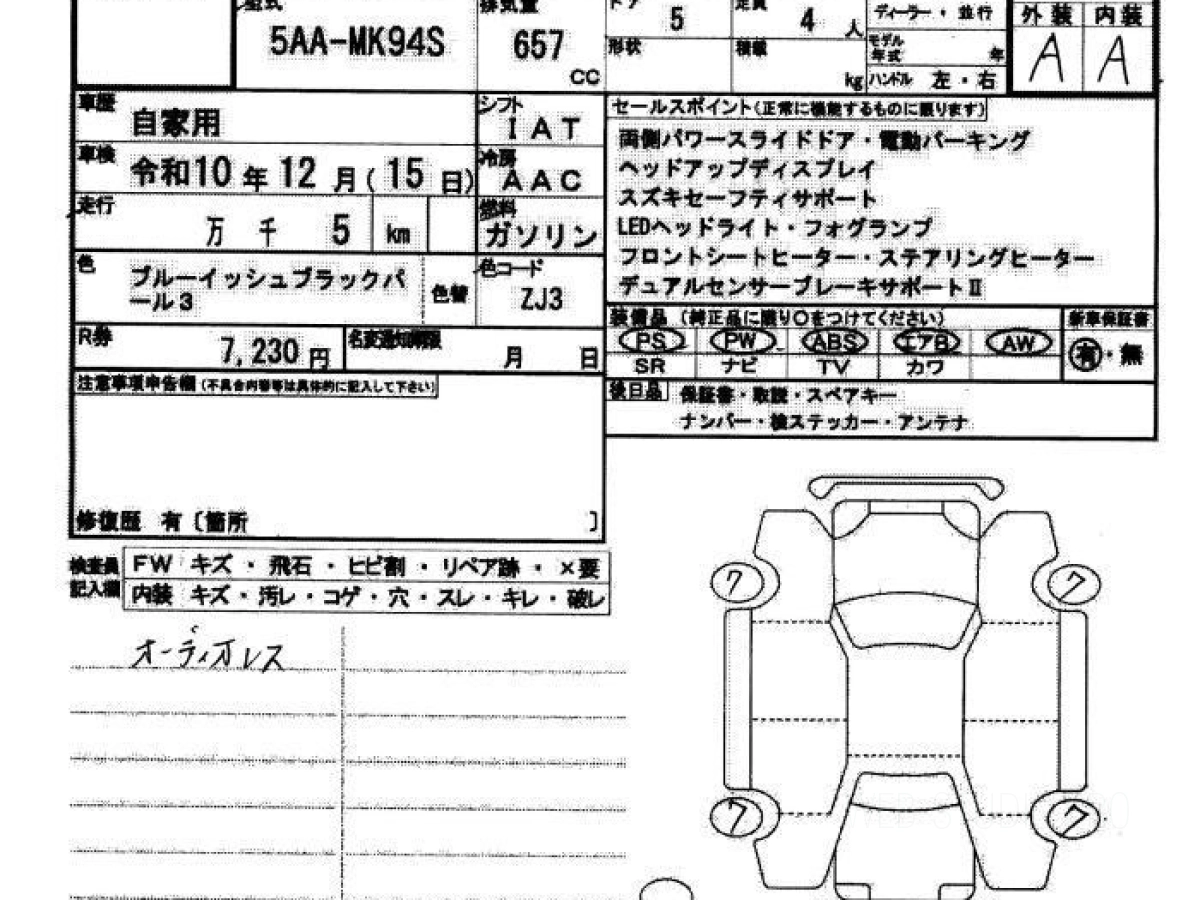 型式
5AA-MK94S
排気量
657
CC
ドア
5
定員
4
人
形状
積載
kg
ディーラー・並行
モデル年式
年
ハンドル 左・右
外装 内装
A A
車歴
自家用
シフト
IAT
車検
令和10年12月(15日)
冷房
AAC
走行
万 千 5 km
燃料
ガソリン
色
ブルーイッシュブラックパ
ール3
色替
色コード
ZJ3
R券
7,230円
名変通知期限
月 日
注意事項申告欄(不具合内容等は具体的に記入して下さい)
修復歴 有〔箇所 〕
セールスポイント(正常に機能するものに限ります)
両側パワースライドドア・電動パーキング
ヘッドアップディスプレイ
スズキセーフティサポート
LEDヘッドライト・フォグランプ
フロントシートヒーター・ステアリングヒーター
デュアルセンサーブレーキサポートⅡ
装備品 (純正品に限り〇をつけてください)
PS PW ABS エアB AW
SR ナビ TV カワ
新車保証書
有・無
後日品
保証書・取説・スペアキー
ナンバー・検ステッカー・アンテナ
検査員
記入欄
FW キズ・飛石・ヒビ割・リペア跡・×要
内装 キズ・汚レ・コゲ・穴・スレ・キレ・破レ
オーディオレス
7 7
7 7